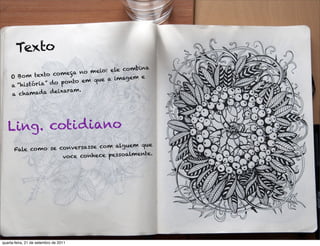 Texto
O Bom texto começa no meio: ele combina
a "história" do ponto em que a imagem e
a chamada deixaram.
Ling. cotidiano
Fale como se conversasse com alguem que
voce conhece pessoalmente.
quarta-feira, 21 de setembro de 2011